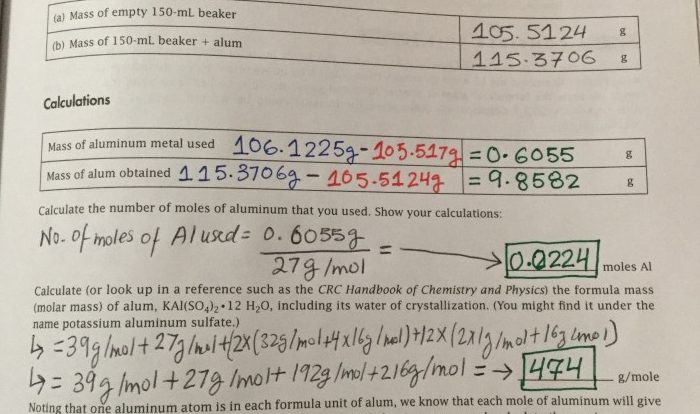 (a) Mass of empty 150-mL beaker 105.5124 g
(b) Mass of 150-mL beaker + alum 115.3706 g
Calculations
Mass of aluminum metal used 106.1225g - 105.517g = 0.6055 g
Mass of alum obtained 115.3706g - 105.5124g = 9.8582 g
Calculate the number of moles of aluminum that you used. Show your calculations:
No. of moles of Al used = 0.6055g / 27g/mol = → 0.0224 moles Al
Calculate (or look up in a reference such as the CRC Handbook of Chemistry and Physics) the formula mass
(molar mass) of alum, KAl(SO₄)₂•12 H₂O, including its water of crystallization. (You might find it under the
name potassium aluminum sulfate.)
↳ = 39g/mol + 27g/mol + (2X(32g/mol + 4x16g/mol) + 12X(2x1g/mol + 16g/mol)
↳ = 39g/mol + 27g/mol + 192g/mol + 216g/mol = → 474 g/mole
Noting that one aluminum atom is in each formula unit of alum, we know that each mole of aluminum will give